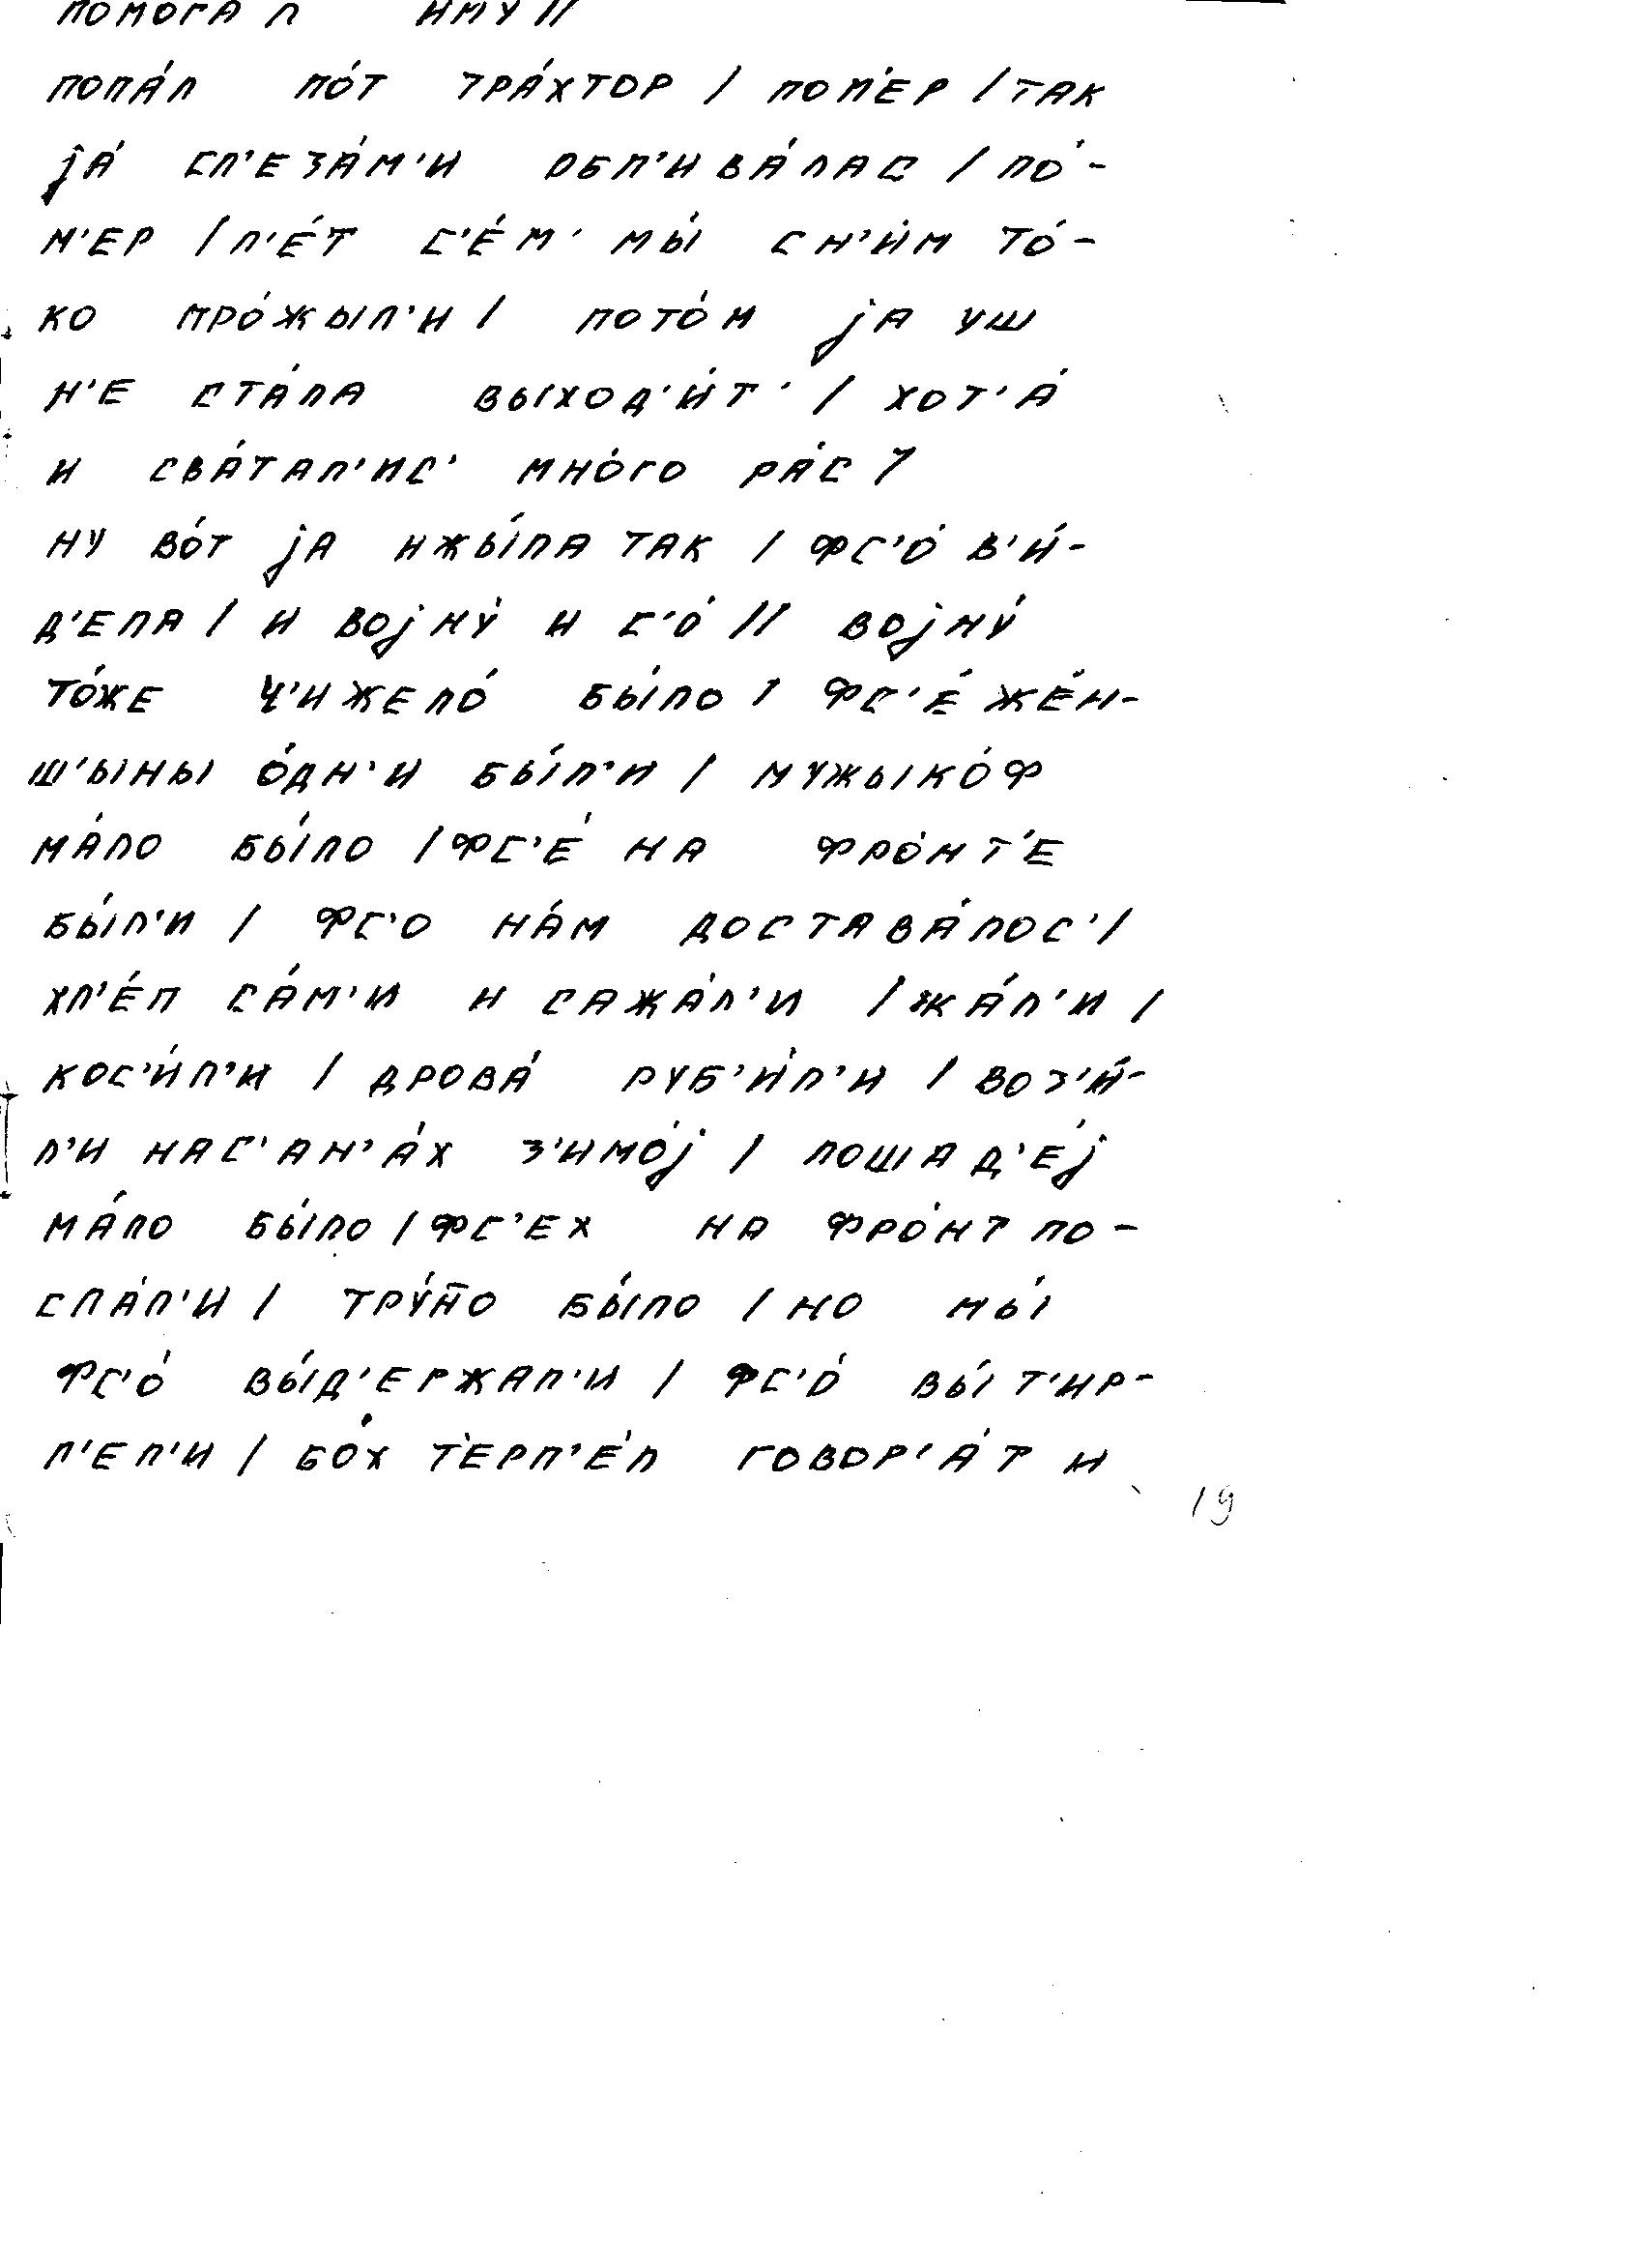 помогал иму //
попа́л по́т тра́хтор / пом'ер / так
jа́ сл'еза́м'и обл'ива́лас / по́-
м'ер / л'е́т с'е́м' мы́ сн'и́м то́-
ко про́жыл'и / пото́м jа уш
н'е ста́ла выход'и́т' / хот'а́
и сва́тал'ис' мно́го ра́с /
ну во́т jа ижы́ла так / фс'о́ в'и́-
д'ела / и воjну́ и с'о́ // воjну́
то́же ч'ижело́ бы́ло / фс'е́ же́н-
ш'ыны о́дн'и бы́л'и / мужыко́ф
ма́ло бы́ло / фс'е́ на фро́нт'е
бы́л'и / фс'о на́м достава́лос' /
хл'е́п са́м'и и сажа́л'и / жа́л'и /
кос'и́л'и / дрова́ руб'и́л'и / воз'и́-
л'и нас'ан'а́х з'имо́j / лошад'е́j
ма́ло бы́ло / фс'ех на фро́нт по-
сла́л'и / тру́н̄о бы́ло / но мы́
фс'о́ вы́д'ержал'и / фс'о́ вы́т'ир-
п'ел'и / бо́х т'ерп'е́л говор'а́т и
19